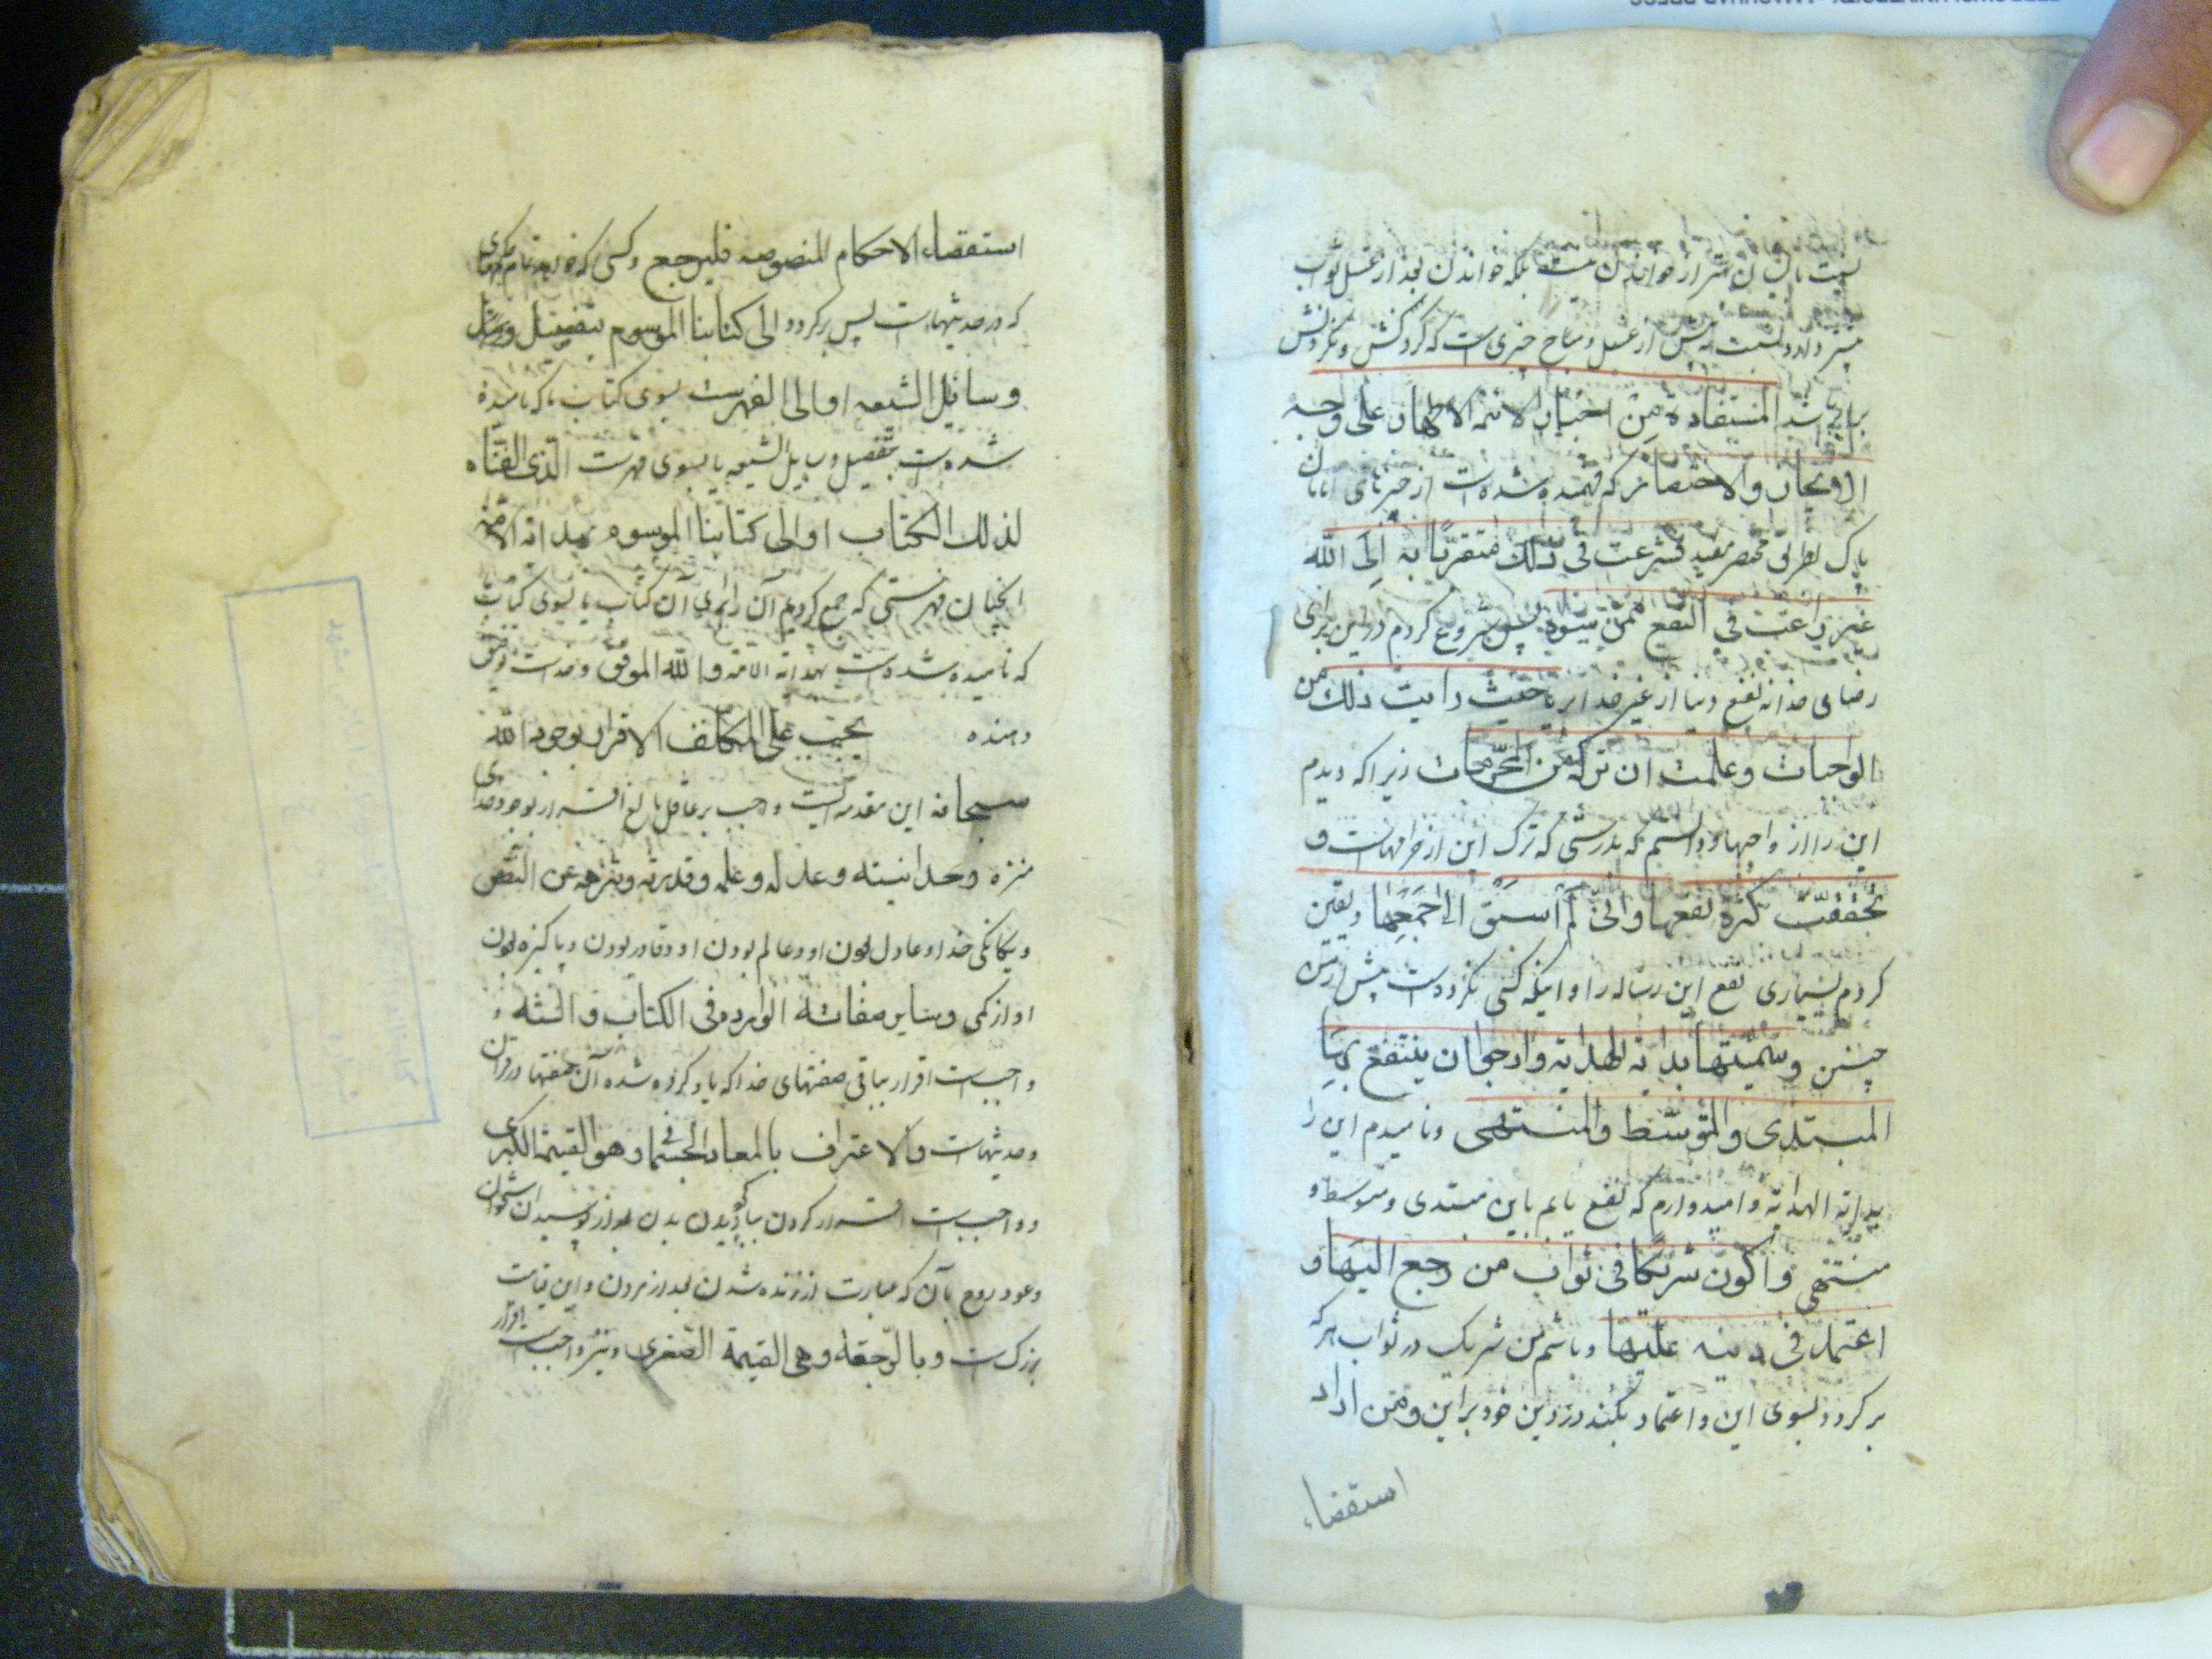 بیشتر دارد نسبت به پیش از غسل و مباح چیزی است که کردنش و نکردنش
برابر باشد المستفادة من اخبار الائمه الاطهار علی وجه
الایجاز والاختصار که فهمیده شده است از خبرهای امامان
پاک بطریق مختصر مفید فشرعت فی ذلک متقرّبا به الی الله
غیر راغب فی النفع ممّن سواه پس شروع کردم در این برای
رضای خدا نه نفع دنیا از غیر خدا حیث رایت ذلک من
الواجبات و علمت ان ترکه من المحرّمات زیرا که دیدم
این را از واجبها و دانستم که بدرستی که ترک این از حرامهاست و
تحقّقت کثرة نفعها و انّی لم اسبق الی جمعها و یقین
کردم بسیاری نفع این رساله را و اینکه کسی نکرده است پیش از من
چنین و سمّیتها بدایة الهدایة و ارجو ان ینتفع بها
المبتدی و المتوسّط و المنتهی و نامیدم این را
بدایة الهدایة و امیدوارم که نفع یابم باین مبتدی و متوسط و
منتهی و اکون شریکا فی ثواب من رجع الیها و
اعتمد فی دینه علیها و باشم من شریک در ثواب هر که
برگردد بسوی این و اعتماد بکند در دین خود بر این و من اراد
استقصاء
استقصاء الاحکام المنصوصه فلیرجع و کسی که خواهد تمام حکمهای
که در حدیثهاست پس برگردد الی کتابنا الموسوم بتفصیل وسائل
وسائل الشیعه او الی الفهرست بسوی کتاب ما که نامیده
شده است بتفصیل وسایل الشیعه یا بسوی فهرست الّذی الّفناه
لذلک الکتاب او الی کتابنا الموسوم بهدایة الامّة
انچنان فهرستی که جمع کردیم آن را برای آن کتاب یا بسوی کتاب
که نامیده شده است بهدایة الامّة و اللّه الموفّق و خداست توفیق
دهنده یجب علی المکلّف الاقرار بوجود الله
سبحانه این مقدمه ایست واجب بر عاقل بالغ اقرار بوجود خدای
منزه و وحدانیته و عدله و علمه و قدرته و تنزهه عن النّقص
و یگانگی خدا و عادل بودن او و عالم بودن او و قادر بودن و پاکیزه بودن
او از کمی و سایر صفاته الوارده فی الکتاب و السّنّة و
واجبست اقرار بباقی صفتهای خدا که یاد کرده شده آن صفتها در قرآن
و حدیثهاست و الاعتراف بالمعاد الجسمانی و هو القیمة الکبری
و واجبست اقرار کردن بباز گردیدن بدن بعد از پوسیدن استخوان
و عود روح بآن که عبارت از زنده شدن بعد از مردن و این قیامت
بزرگ است و بالرّجعة و هی القیمة الصّغری و نیز واجب است اقرار